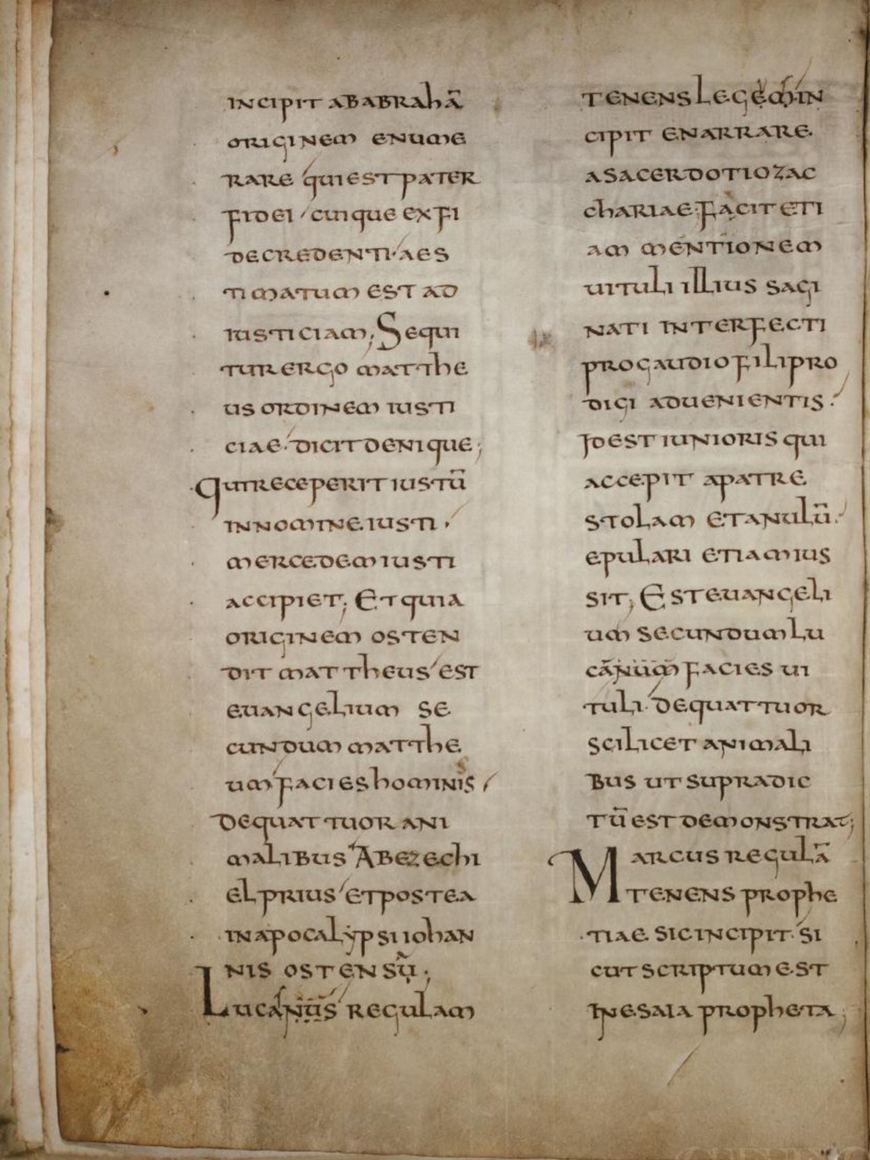 INCIPIT AB ABRAHĀ
ORIGINEM ENUME
RARE QUI EST PATER
FIDEI CUIQUE EX FI
DE CREDENTI AES
TIMATUM EST AD
IUSTICIAM; SEQUI
TUR ERGO MATTHE
US ORDINEM IUSTI
CIAE DICIT DENIQUE;
QUI RECEPERIT IUSTŪ
IN NOMINE IUSTI
MERCEDEM IUSTI
ACCIPIET; ET QUIA
ORIGINEM OSTEN
DIT MATTHEUS EST
EUANGELIUM SE
CUNDUM MATTHE
UM FACIES HOMINIS
DE QUATTUOR ANI
MALIBUS AB EZECHI
EL PRIUS ET POSTEA
IN APOCALYPSI IOHAN
NIS OSTENSŪ;
LUCANUS REGULAM
TENENS LEGEM IN
CIPIT ENARRARE
A SACERDOTIO ZAC
CHARIAE FACIT ETI
AM MENTIONEM
UITULI ILLIUS SAGI
NATI INTERFECTI
PRO GAUDIO FILI PRO
DIGI ADUENIENTIS.
ID EST IUNIORIS QUI
ACCEPIT A PATRE
STOLAM ET ANULŪ.
EPULARI ETIAM IUS
SIT; EST EUANGELI
UM SECUNDUM LU
CANUM FACIES UI
TULI DE QUATTUOR
SCILICET ANIMALI
BUS UT SUPRA DIC
TŪ EST DEMONSTRAT;
MARCUS REGULĀ
TENENS PROPHE
TIAE SIC INCIPIT SI
CUT SCRIPTUM EST
IN ESAIA PROPHETA;